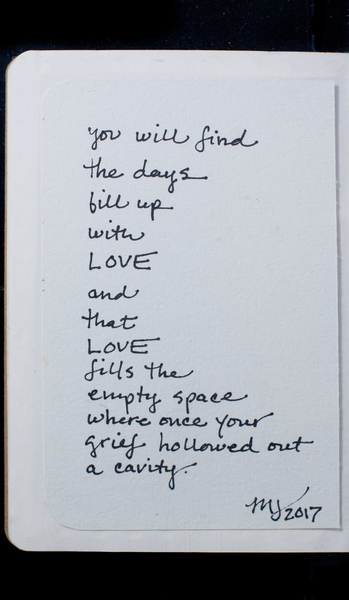 you will find
the days
fill up
with
LOVE
and
that
LOVE
fills the
empty space
where once your
grief hollowed out
a cavity.
MJ 2017